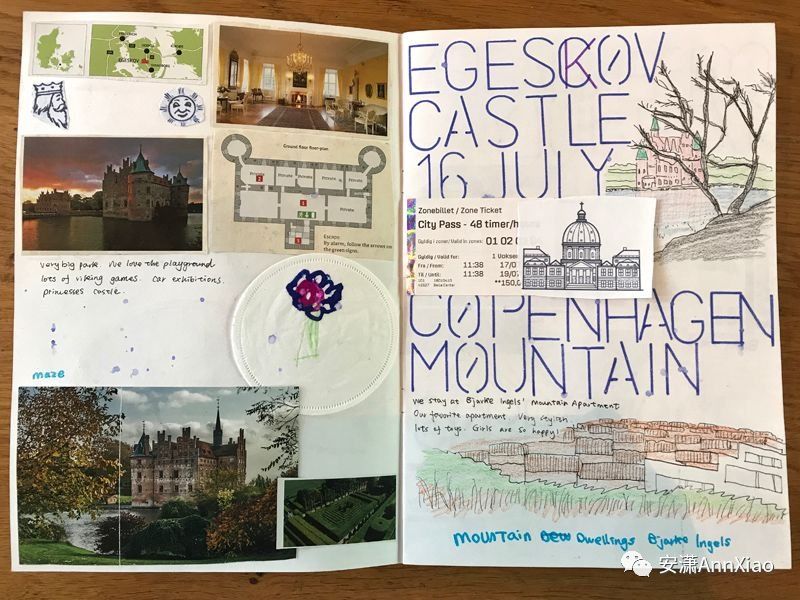 EGESKOV
Ground floor floor-plan
Private
2
Private
Private
Private
Private
1
Private
Private
4
1
ESCAPE:
By alarm, follow the arrows on
the green signs.
very big park. We love the playground
lots of viking games. car exhibitions.
princesses castle.
maze
EGESCKOV
CASTLE
16 JULY
Zonebillet / Zone Ticket
City Pass - 48 timer/h
Gyldig i zoner/Valid in zones: 01 02 0
Gyldig / Valid for: 1 Voksen
Fra / From: 11:38 17/0
Til / Until: 11:38 19/0
**150,0
COPENHAGEN
MOUNTAIN
We stay at Bjarke Ingels' Mountain Apartment
Our favorite apartment Very stylish
lots of toys. Girls are so happy!
MOUNTAIN Dwellings Bjarke Ingels
安潇AnnXiao